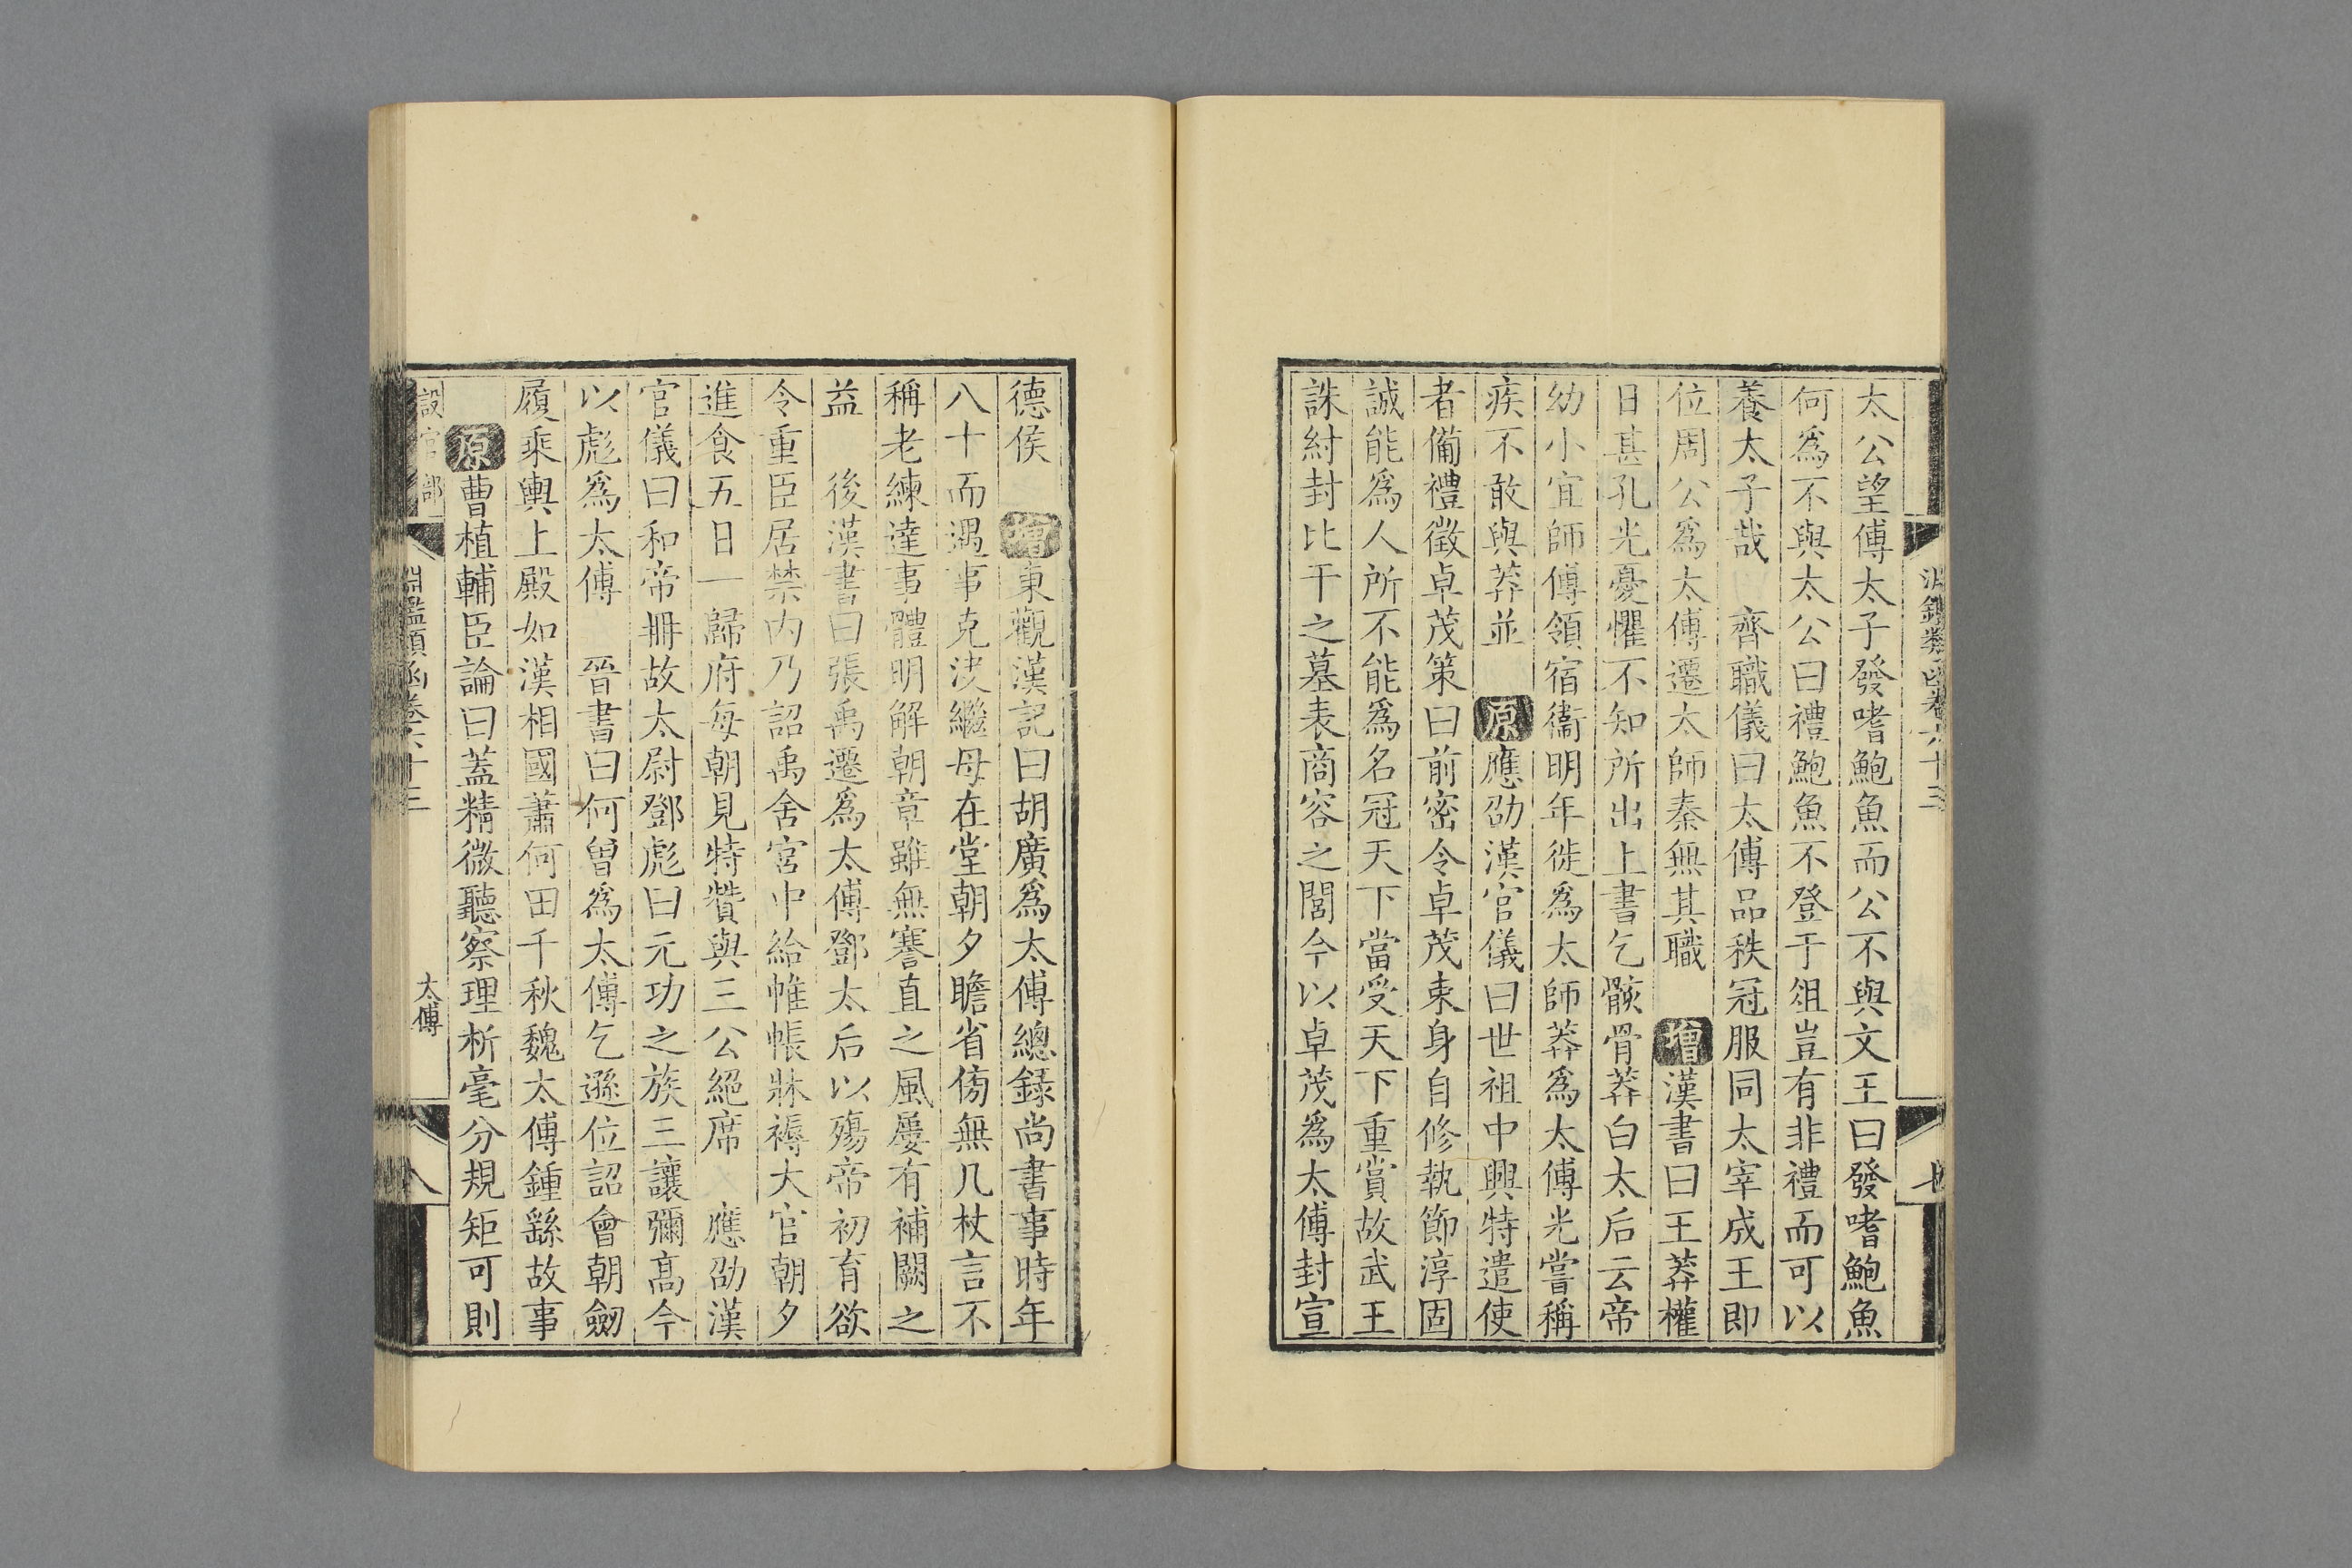 淵鑑類函卷六十三
七
太公望傅太子發嗜鮑魚而公不與文王曰發嗜鮑魚
何爲不與太公曰禮鮑魚不登于俎豈有非禮而可以
養太子哉　齊職儀曰太傅品秩冠服同太宰成王即
位周公爲太傅遷太師秦無其職　增漢書曰王莽權
日甚孔光憂懼不知所出上書乞骸骨莽白太后云帝
幼小宜師傅領宿衞明年徙爲太師莽爲太傅光嘗稱
疾不敢與莽並　原應劭漢官儀曰世祖中興特遣使
者備禮徵卓茂策曰前密令卓茂束身自修執節淳固
誠能爲人所不能爲名冠天下當受天下重賞故武王
誅紂封比干之墓表商容之閭今以卓茂爲太傅封宣
德侯　增東觀漢記曰胡廣爲太傅總録尚書事時年
八十而遇事克決繼母在堂朝夕瞻省傍無几杖言不
稱老練達事體明解朝章雖無謇直之風屢有補闕之
益　後漢書曰張禹遷爲太傅鄧太后以殤帝初育欲
令重臣居禁內乃詔禹舍宮中給帷帳牀褥大官朝夕
進食五日一歸府每朝見特贊與三公絕席　應劭漢
官儀曰和帝冊故太尉鄧彪曰元功之族三讓彌高今
以彪爲太傅　晉書曰何曾爲太傅乞遜位詔會朝劒
履乘輿上殿如漢相國蕭何田千秋魏太傅鍾繇故事
原曹植輔臣論曰蓋精微聽察理析毫分規矩可則
設官部
淵鑑類函卷六十三
太傅
八